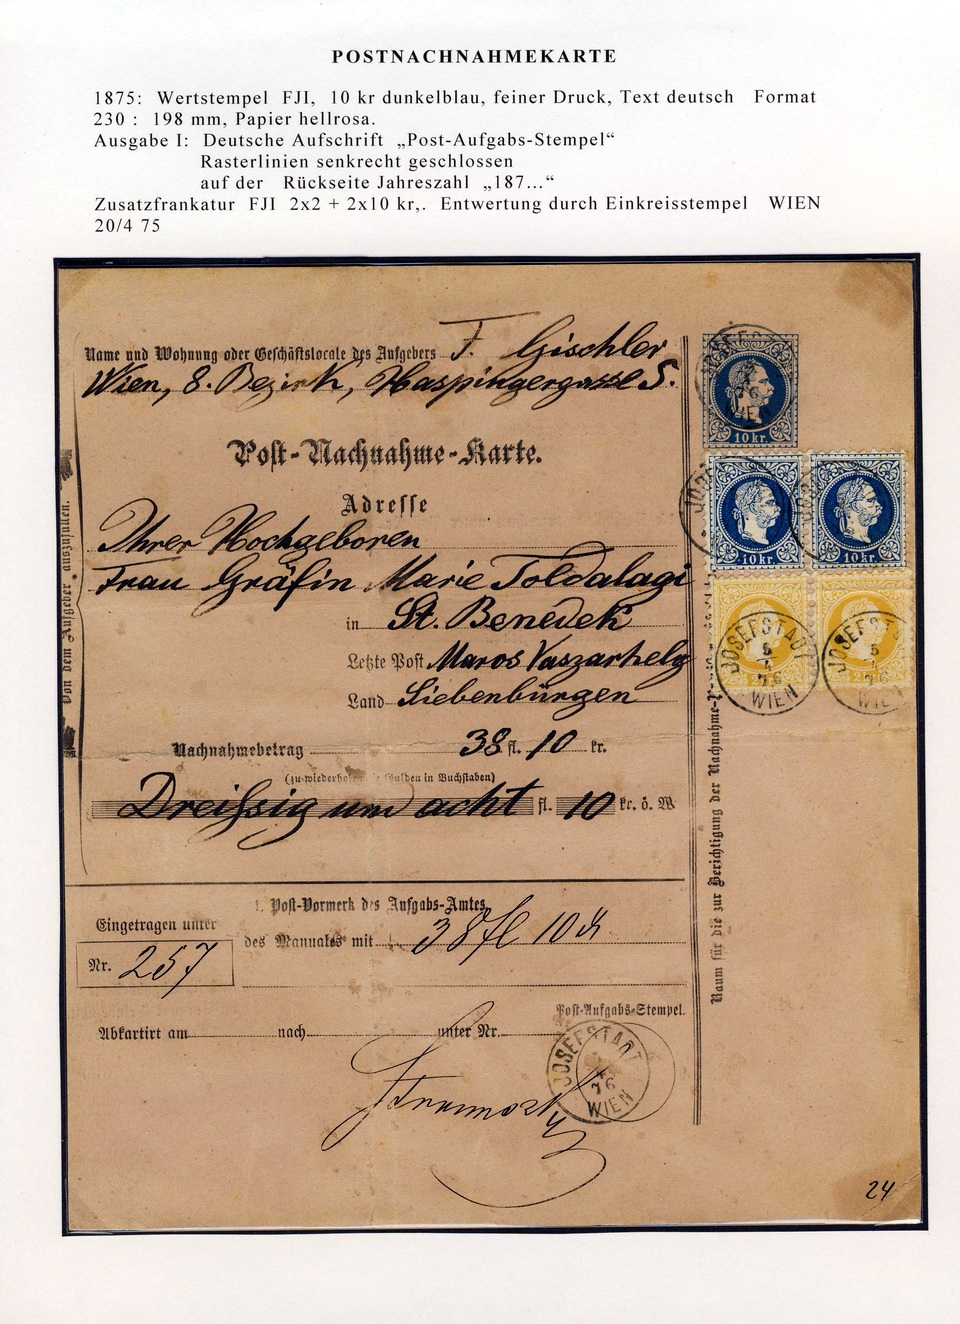 POSTNACHNAHMEKARTE
1875: Wertstempel FJI, 10 kr dunkelblau, feiner Druck, Text deutsch Format
230 : 198 mm, Papier hellrosa.
Ausgabe I: Deutsche Aufschrift „Post-Aufgabs-Stempel“
Rasterlinien senkrecht geschlossen
auf der Rückseite Jahreszahl „187...“
Zusatzfrankatur FJI 2x2 + 2x10 kr,. Entwertung durch Einkreisstempel WIEN
20/4 75
Name und Wohnung oder Geschäftslocale des Aufgebers F. Gischler
Wien, 8. Bezirk, Haspingergasse 5.
10 kr.
Post-Nachnahme-Karte.
Adresse
10 kr. 10 kr.
Ihrer Hochgeboren
Frau Gräfin Marie Toldalagi
in St. Benedek
JOSEFSTADT 5 4 76 WIEN
JOSEFSTADT 5 4 76 WIEN
Letzte Post Maros Vaszarhely
Land Siebenbürgen
Von dem Aufgeber auszufüllen.
Nachnahmebetrag 38 fl. 10 kr.
(zu wiederholen Gulden in Buchstaben)
Dreißig um acht fl. 10 kr. ö. W.
Raum für die zur Berichtigung der Nachnahme-
1. Post-Vormerk des Aufgabs-Amtes
Eingetragen unter
des Manuales mit 38 fl 10 kr
Nr. 257
Post-Aufgabs-Stempel.
Abkartirt am nach unter Nr.
JOSEFSTADT 76 WIEN
24